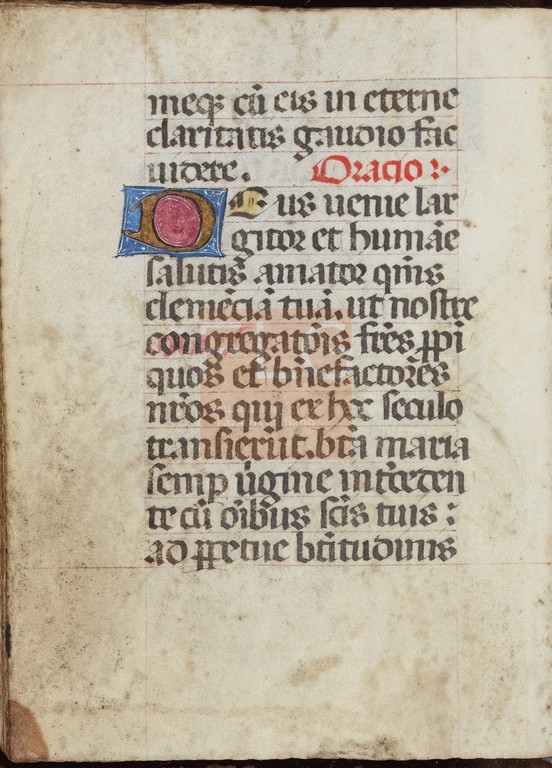 meq̃ cũ eis in eterne
claritatis gaudio fac
uidere. Oracio :·
Deus uenie lar
gitor et humãe
salutis amator qm̃s
clemẽciã tuã. ut nostre
congregatõis fr̃es ꝓpi
quos et bñefactores
nr̃os qui ex hoc seculo
transierũt. bt̃a maria
semꝑ ũgine interceden
te cũ oĩbus scĩs tuis :
ad ꝑpetue bt̃itudinis